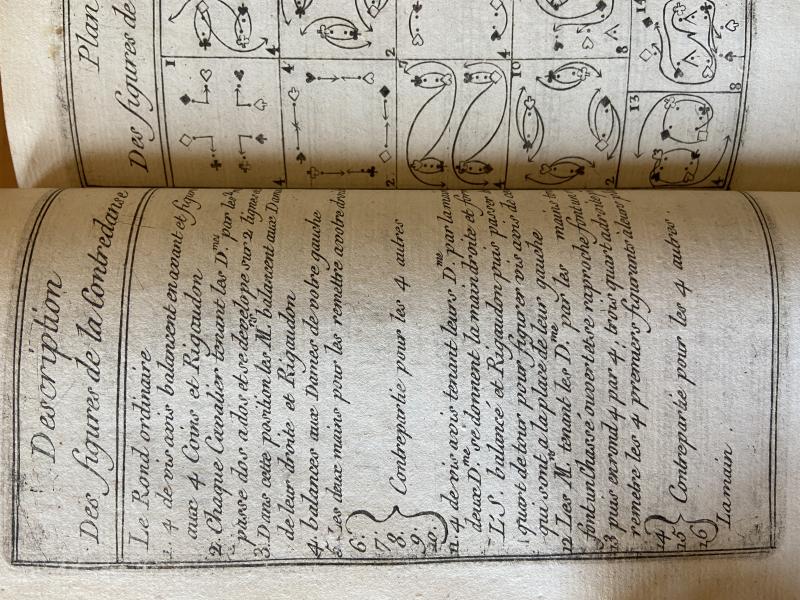 Description
Des figures de la Contredanse
Le Rond ordinaire
1. 4 de vis avis balancent en avant et
aux 4 Coins et Rigaudon
2. Chaque Cavalier tenant les D.mes par les
passe dos a dos et se develope sur 2 lignes
3. Dans cette position les M.rs balancent aux Dam
de leur droite et Rigaudon
4. balancés aux Dames de votre gauche
5. Les deux mains pour les remettre a votre droi
6.
7.
8. Contrepartie pour les 4 autres
9.
10.
11. 4 de vis avis tenant leurs D.me par la
deux D.mes se donnent la main droite et
L.S. balancé et Rigaudon puis passer
quart de tour pour figurer vis avis de
qui sont a la place de leur gauche
12 Les M.rs tenant les D.mes par les mains
font un chassé ouvert et se raproche font un
13 puis en rond 4 par 4; trois quart a droite
remetre les 4 premiers figurants à leurs
14
15 Contrepartie pour les 4 autres.
16
La main.
Plan
Des figures de
1
4
4
2
4
2
7
4
4
10
8
2
13
8
4